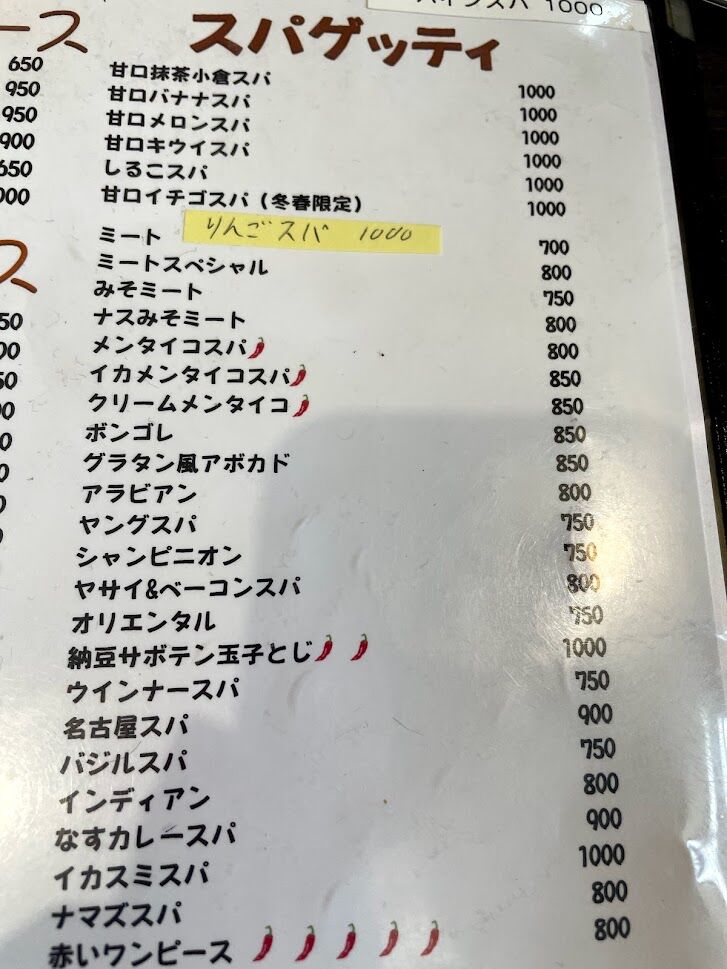 パインスパ 1000
ース
650
950
950
900
650
スパゲッティ
甘口抹茶小倉スパ 1000
甘口バナナスパ 1000
甘口メロンスパ 1000
甘口キウイスパ 1000
しるこスパ 1000
甘口イチゴスパ（冬春限定） 1000
りんごスパ 1000
ミート 700
ミートスペシャル 800
みそミート 750
ナスみそミート 800
メンタイコスパ 800
イカメンタイコスパ 850
クリームメンタイコ 850
ボンゴレ 850
グラタン風アボカド 850
アラビアン 800
ヤングスパ 750
シャンピニオン 750
ヤサイ&ベーコンスパ 800
オリエンタル 750
納豆サボテン玉子とじ 1000
ウインナースパ 750
名古屋スパ 900
バジルスパ 750
インディアン 800
なすカレースパ 900
イカスミスパ 1000
ナマズスパ 800
赤いワンピース 800